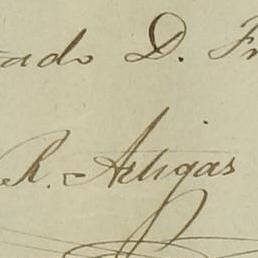 ado D. Fr
R. Artigas